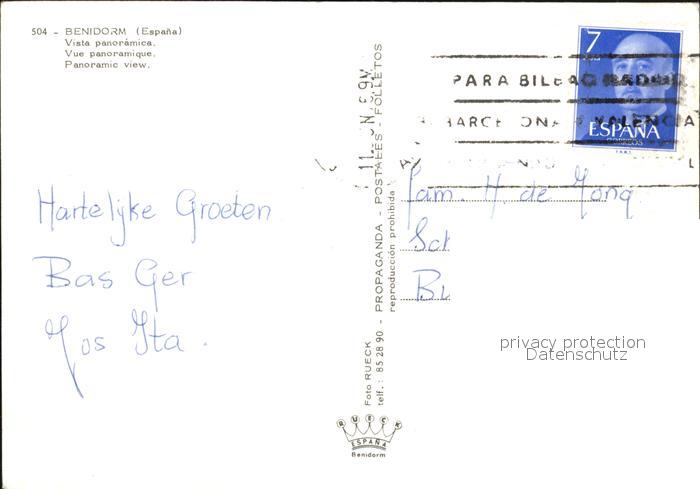 504 - BENIDORM (España)
Vista panorámica.
Vue panoramique.
Panoramic view.
Hartelijke Groeten
Bas Ger
Jos Ita.
Foto RUECK
telf.: 85 28 90 - PROPAGANDA - POSTALES - FOLLETOS
reproducción prohibida
RUECK
ESPAÑA
Benidorm
7
ESPAÑA
CORREOS
PARA BILBAO
VALENCIA
Fam. H. de Jong
Sch
Bu
privacy protection
Datenschutz